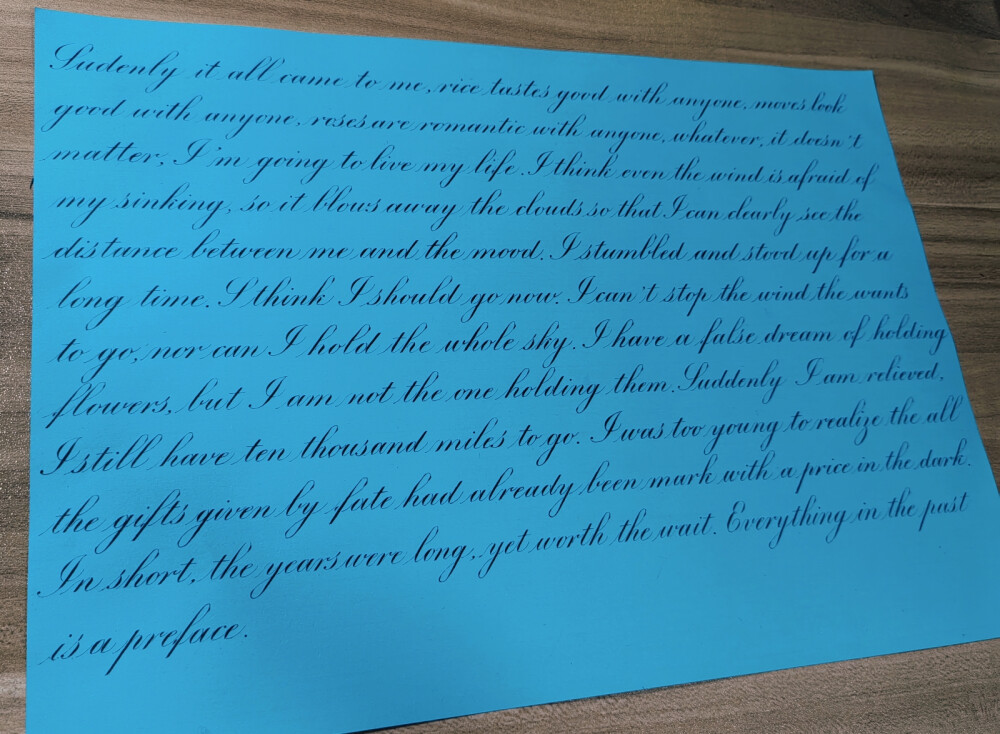 Sudenly it all came to me, rice tastes good with anyone, moves look
good with anyone, roses are romantic with anyone, whatever, it doesn't
matter, I'm going to live my life. I think even the wind is afraid of
my sinking, so it blows away the clouds so that I can clearly see the
distance between me and the mood. I stumbled and stood up for a
long time. I think I should go now. I can't stop the wind the wants
to go, nor can I hold the whole sky. I have a false dream of holding
flowers, but I am not the one holding them. Suddenly I am relieved,
I still have ten thousand miles to go. I was too young to realize the all
the gifts given by fate had already been mark with a price in the dark.
In short, the years were long, yet worth the wait. Everything in the past
is a preface.